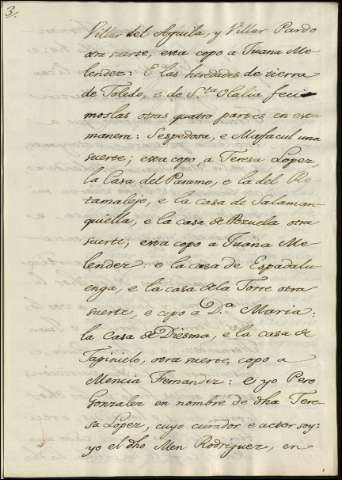 3.
Villar del Aguila, y Villar Pardo
otra suerte, esta copo a Juana Me-
lendez: E las heredades de tierra
de Toledo, e de S.ta Olalla feci-
moslas otras quatro partes en esta
manera: Sespedosa, e Masacul una
suerte; esta copo a Teresa Lopez
la Casa del Paramo, e la del Re-
tamalejo, e la casa de Salaman-
quiella, e la casa de Pozuela otra
suerte; esta copo a Juana Me-
lendez: e la casa de Espadalu-
enga, e la casa de la Torre otra
suerte, e copo a D.a Maria:
la Casa de Diesma, e la casa de
Tapiuelo, otra suerte, copo a
Mencia Fernandez: e yo Pero
Gonzalez en nombre de dha Tere-
sa Lopez, cuyo curador e actor soy:
yo el dho Men Rodriguez, en